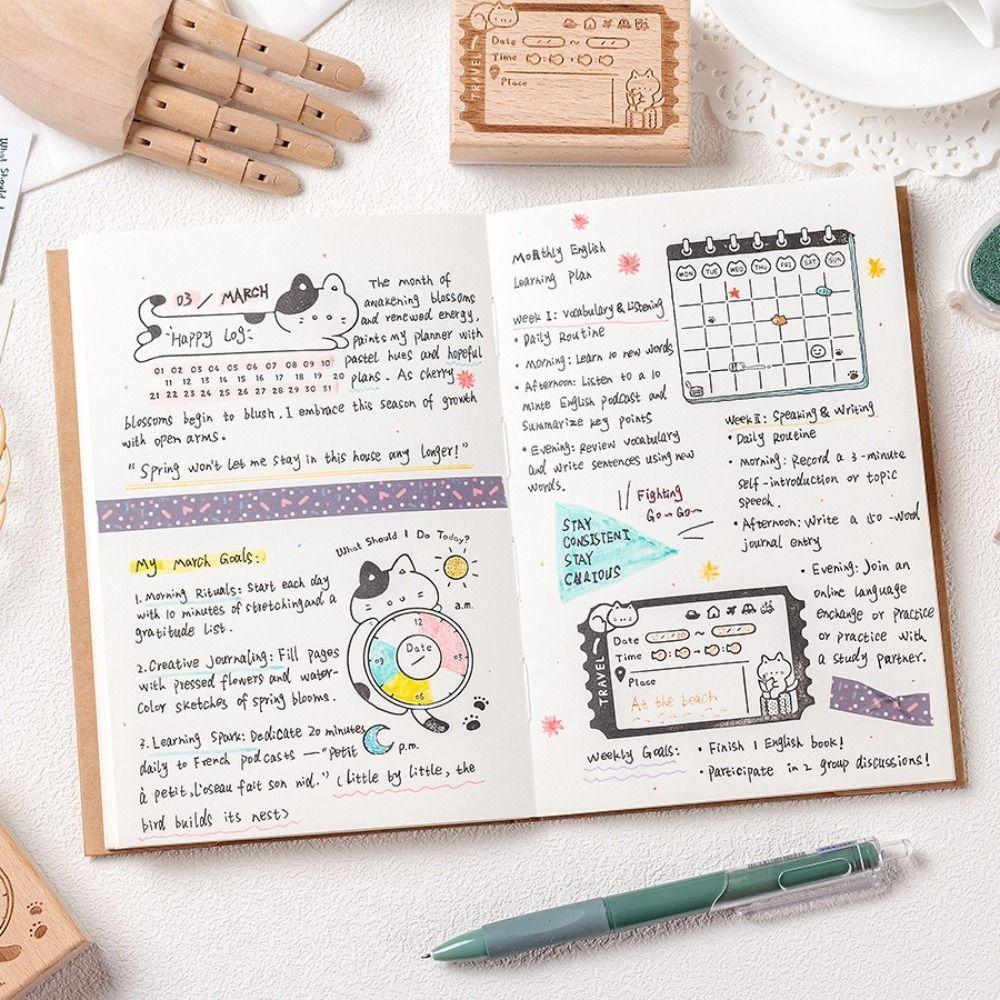 What Should I
TRAVEL
Date ~
Time
Place
03 / MARCH
Happy Log:
01 02 03 04 05 06 07 08 09 10
11 12 13 14 15 16 17 18 19 20
21 22 23 24 25 26 27 28 29 30 31
The month of
awakening blossoms
and renewed energy,
paints my planner with
pastel hues and hopeful
plans. As cherry
blossoms begin to blush, I embrace this season of growth
with open arms.
"Spring won't let me stay in this house any longer!"
My March Goals:
1. Morning Rituals: Start each day
with 10 minutes of stretching and a
gratitude list.
2. Creative Journaling: Fill pages
with pressed flowers and water-
color sketches of spring blooms.
3. Learning Spark: Dedicate 20 minutes
daily to French podcasts — "Petit
à petit, l'oseau fait son nid." (Little by little, the
bird builds its nest)
What Should I Do Today?
a.m.
12
09 Date 03
06
p.m.
Monthly English
Learning Plan
Week I: Vocabulary & Listening
• Daily Routine
• Morning: Learn 10 new words
• Afternoon: Listen to a 10
minte English podcast and
Summarize key points
• Evening: Review vocabulary
and write sentences using new
words.
MON TUE WED THU FRI SAT SUN
Fighting
Go~Go~
STAY
CONSISTENT
STAY
CURIOUS
Week II: Speaking & Writing
• Daily Routine
• Morning: Record a 3-minute
self-introduction or topic
speech.
• Afternoon: Write a 150-word
journal entry.
• Evening: Join an
online language
exchange or practice
or practice with
a study partner.
TRAVEL
Date ~
Time
Place
At the beach
Weekly Goals:
• Finish 1 English book!
• Participate in 2 group discussions!